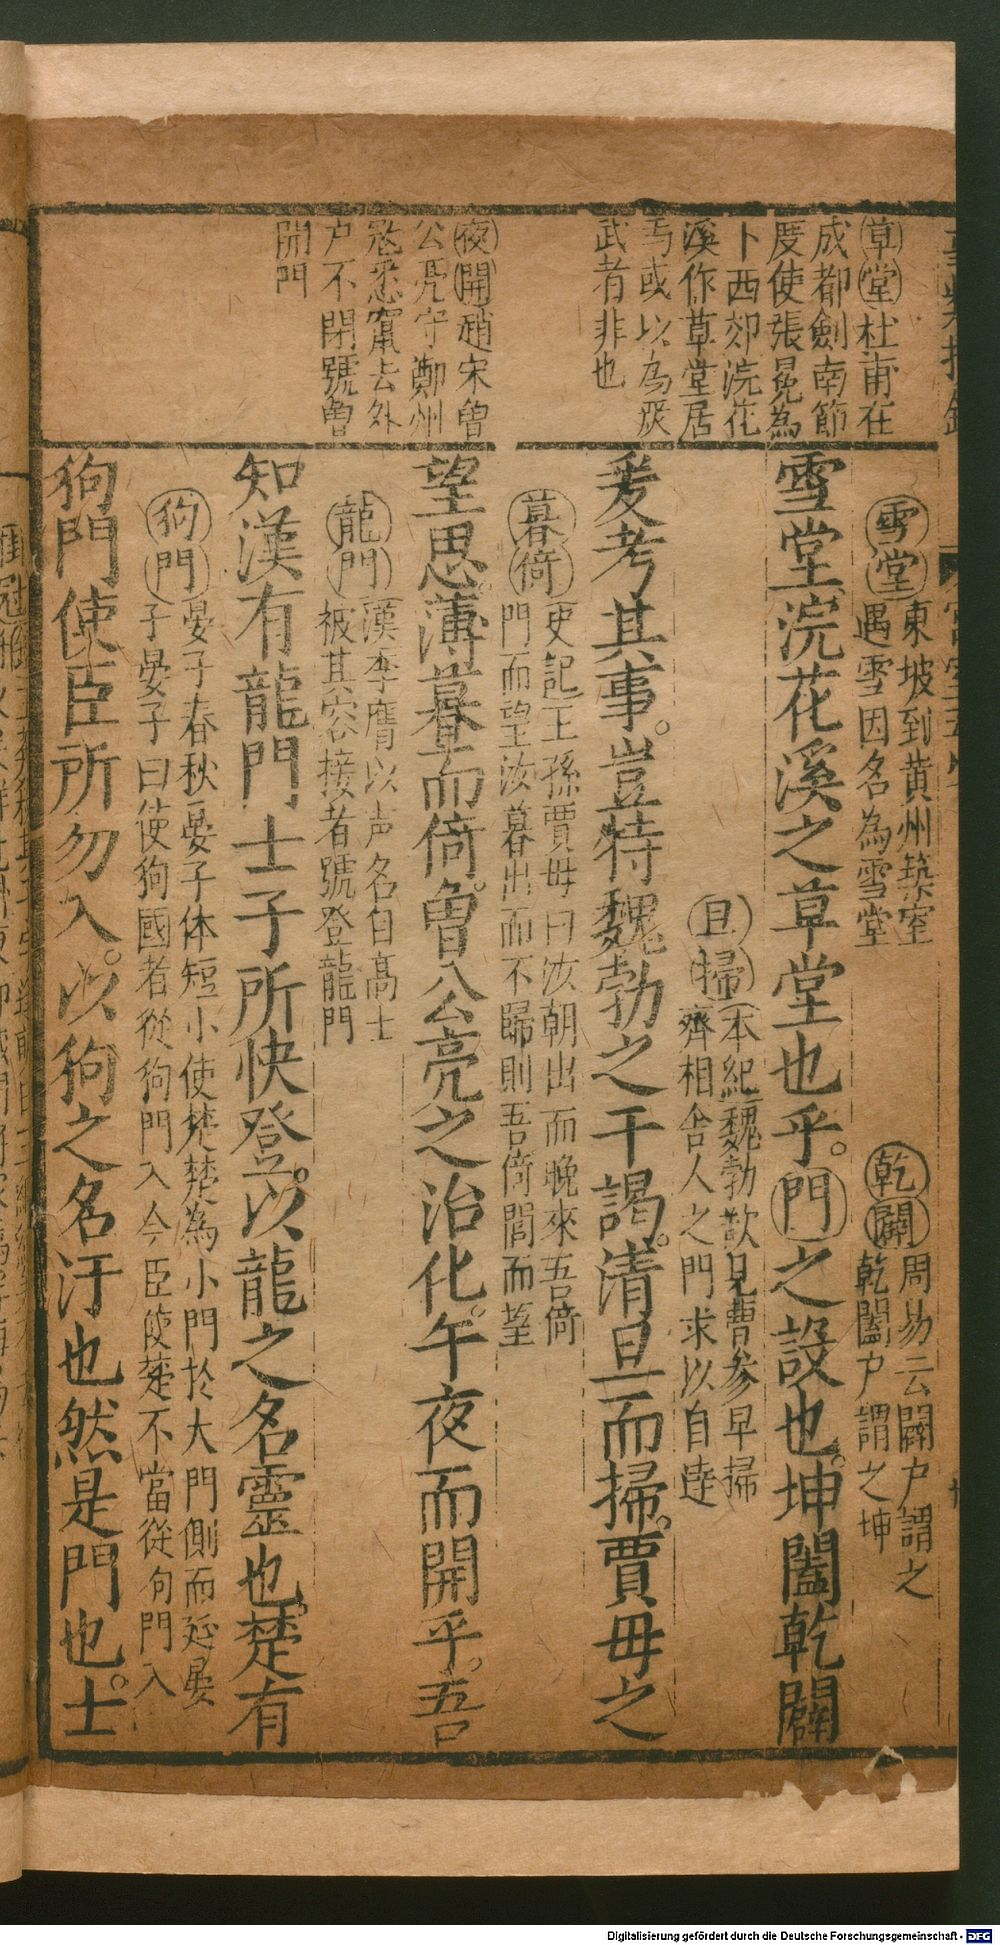 草堂杜甫在
成都劍南節
度使張冕為
卜西郊浣花
溪作草堂居
焉或以為嚴
武者非也
夜開趙宋曾
公亮守鄭州
盗悉竄去外
户不閉號曾
開門
雪堂
東坡到黄州築室
遇雪因名為雪堂
乾闢
周易云闢户謂之
乾闔户謂之坤
雪堂浣花溪之草堂也乎。門之設也。坤闔乾闢
旦掃
本紀魏勃欲見曹参早掃
齊相舍人之門求以自達
爰考其事。豈特魏勃之干謁。清旦而掃。賈毋之
暮倚
史記王孫賈毋曰汝朝出而晚來吾倚
門而望汝暮出而不歸則吾倚閭而望
望思薄暮而倚。曾公亮之治化。午夜而開乎。吾
龍門
漢李膺以声名自高士
被其容接者號登龍門
知漢有龍門士子所快登。以龍之名靈也。楚有
狗門
晏子春秋晏子体短小使楚楚為小門於大門側而延晏
子晏子曰使狗國者從狗門入今臣使楚不當從狗門入
狗門使臣所勿入。以狗之名汙也然是門也。士
Digitalisierung gefördert durch die Deutsche Forschungsgemeinschaft - DFG